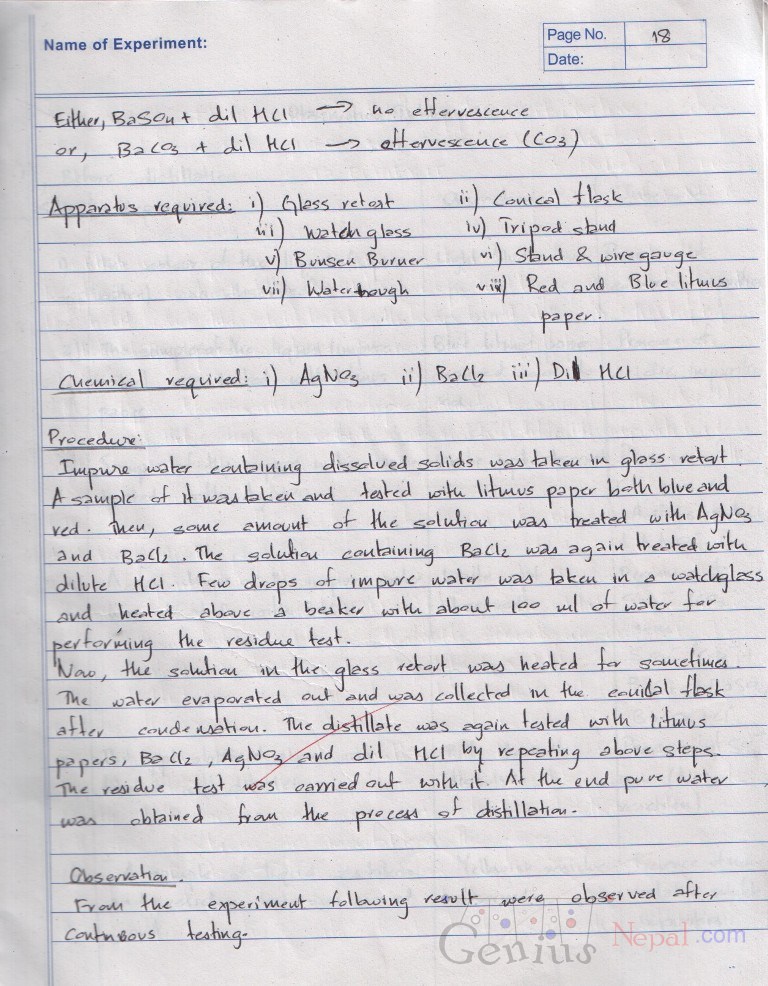 Name of Experiment:
Page No. 18
Date:
Either, BaSO4 + dil HCl → no effervescence
or, BaCO3 + dil HCl → effervescence (CO3)
Apparatus required: i) Glass retort ii) Conical flask
iii) Watch glass iv) Tripod stand
v) Bunsen Burner vi) Stand & wire gauge
vii) Water trough viii) Red and Blue litmus
paper.
Chemical required: i) AgNO3 ii) BaCl2 iii) Dil HCl
Procedure:
Impure water containing dissolved solids was taken in glass retort.
A sample of it was taken and tested with litmus paper both blue and
red. Then, some amount of the solution was treated with AgNO3
and BaCl2. The solution containing BaCl2 was again treated with
dilute HCl. Few drops of impure water was taken in a watchglass
and heated above a beaker with about 100 ml of water for
performing the residue test.
Now, the solution in the glass retort was heated for sometimes.
The water evaporated out and was collected in the conical flask
after condensation. The distillate was again tested with litmus
papers, BaCl2, AgNO3 and dil HCl by repeating above steps.
The residue test was carried out with it. At the end pure water
was obtained from the process of distillation.
Observation
From the experiment following result were observed after
continuous testing.
Genius Nepal.com